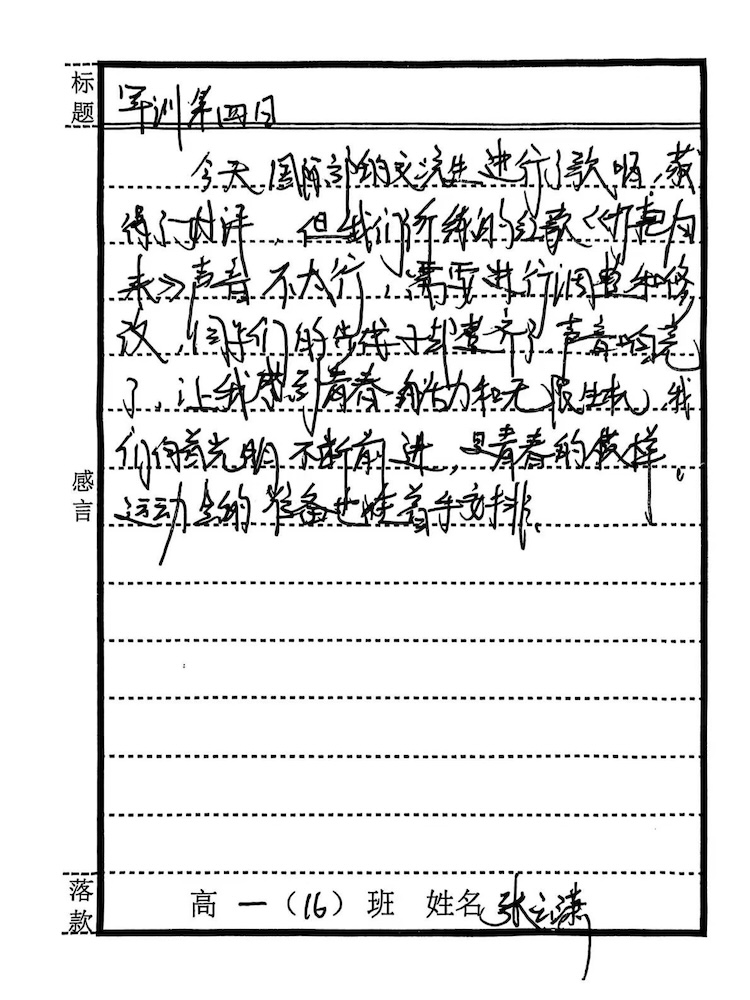 标题
军训第四日
今天国际部的交流生进行了歌唱,获
得了好评,但我们所练的红歌《打靶归
来》声音不太行,需要进行调整和修
改,同学们的步伐却整齐了,声音响亮
了,让我感到青春的活力和无限生机,我
们向着光明不断前进,是青春的模样。
运动会的准备也在着手安排。
感言
落款
高一(16)班 姓名 张云